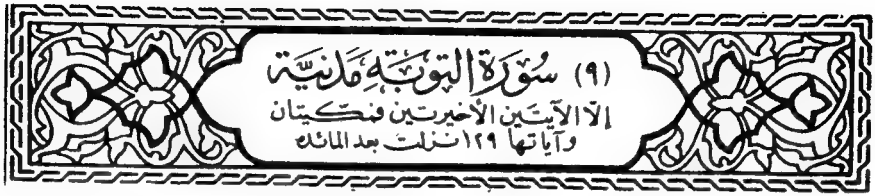 (٩) سُورَةُ التوبَةِ مَدَنيَّة
إلّا الآيتَين الأخيرتَين فمكّيتان
وآياتها ١٢٩ نزلت بعد المائده